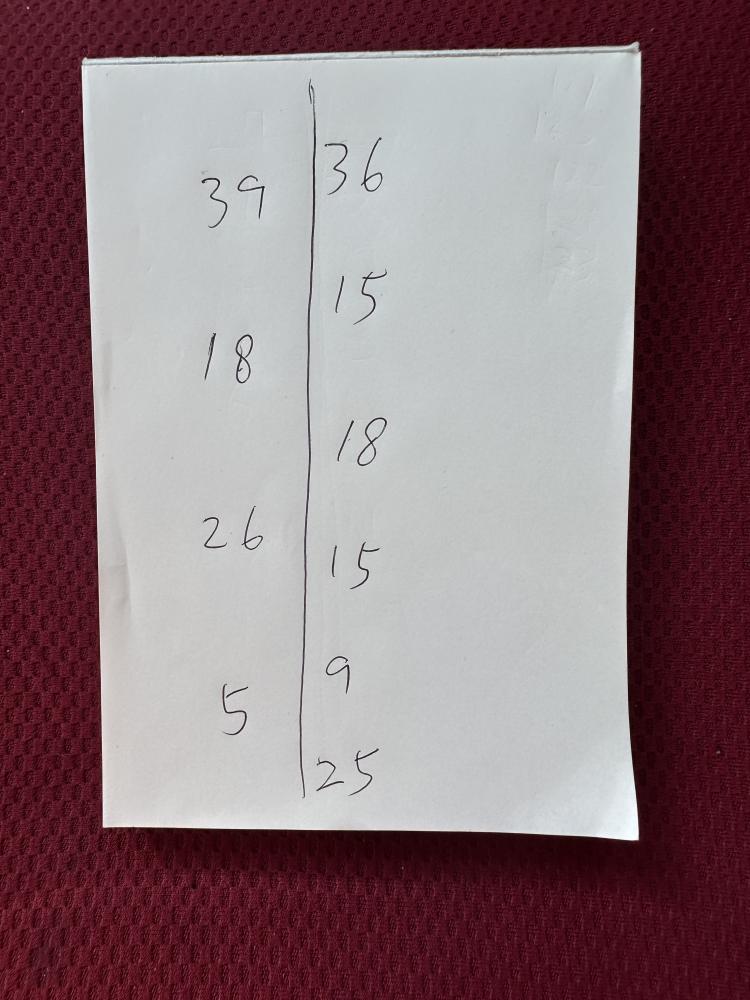 39
18
26
5
36
15
18
15
9
25